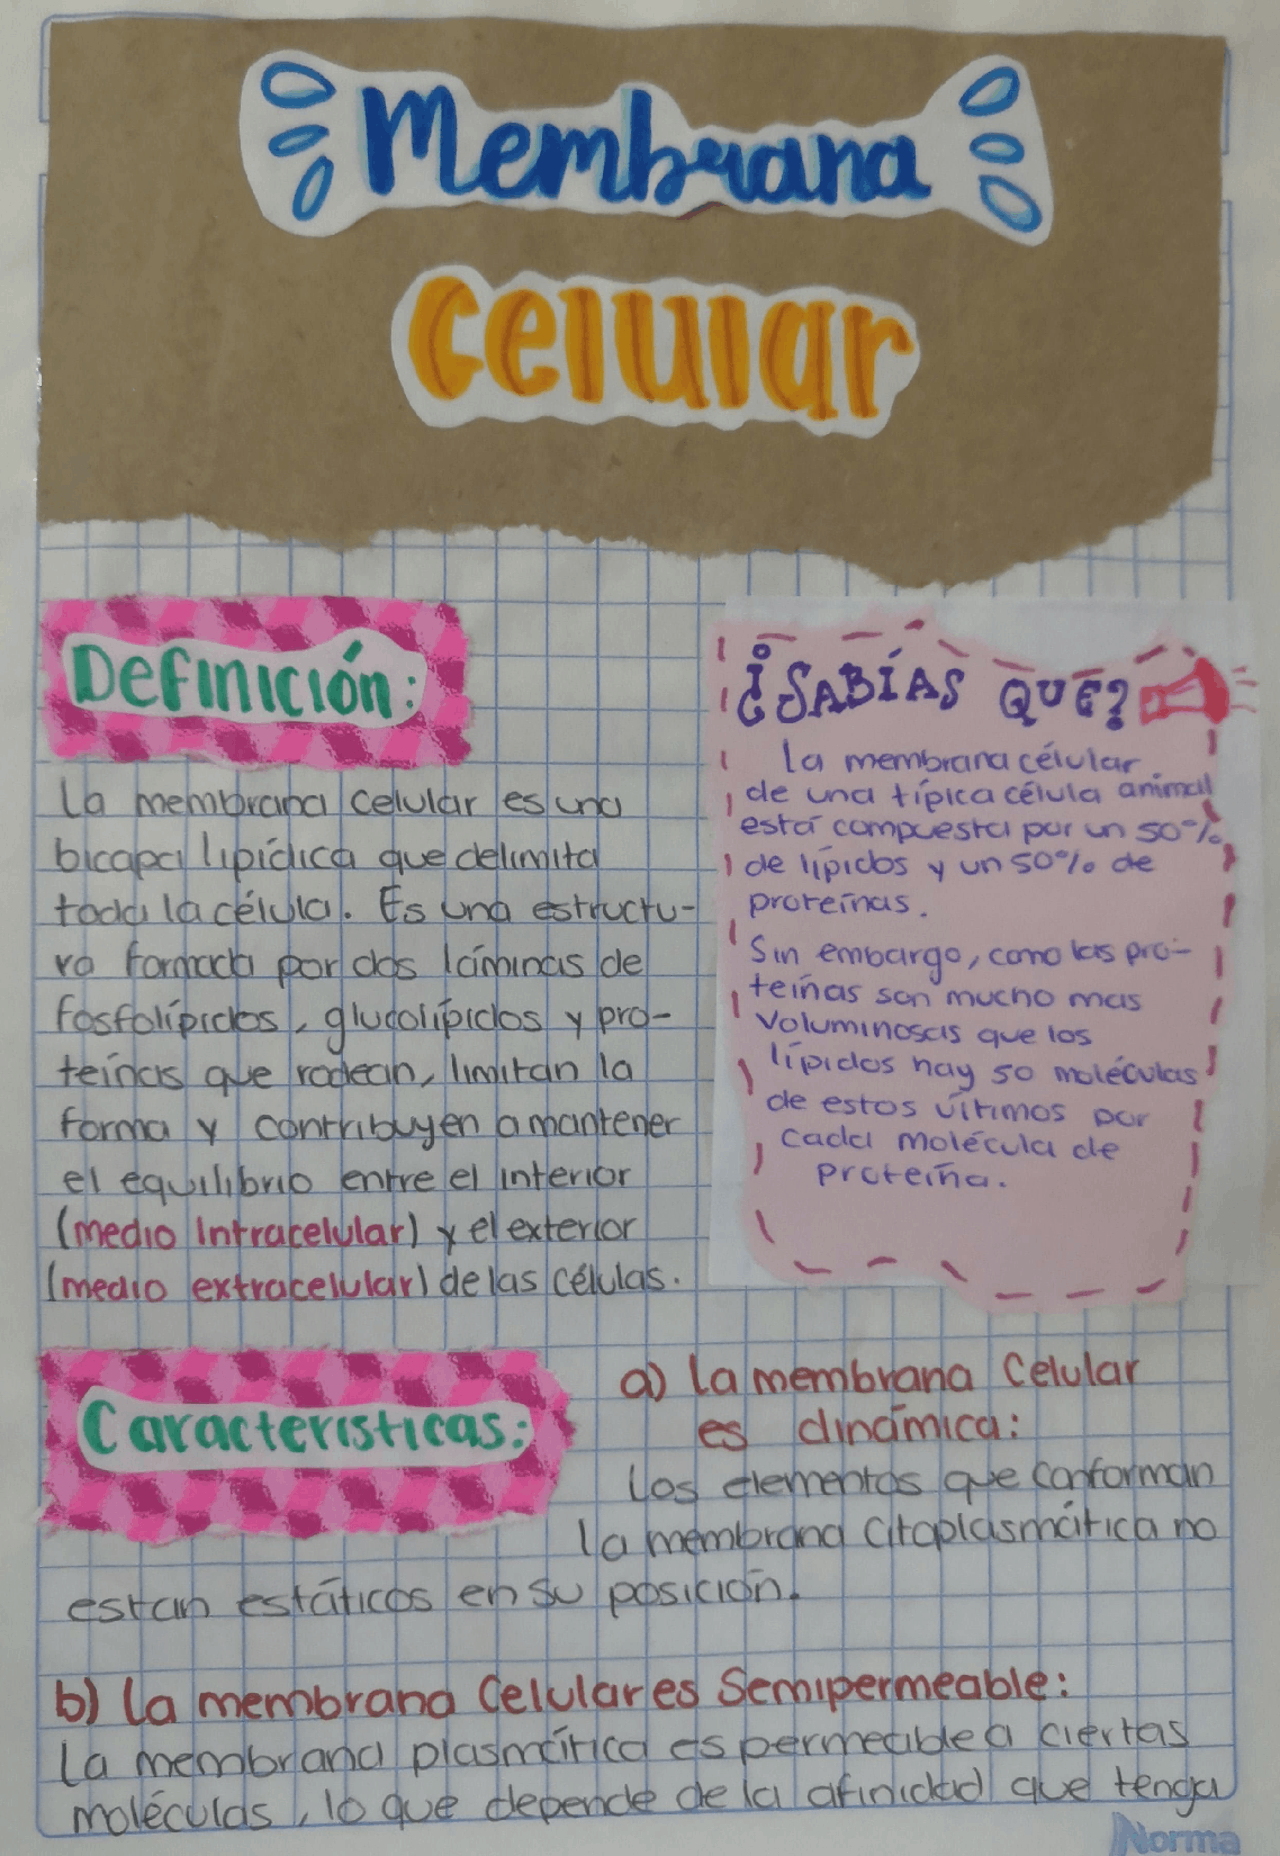 Membrana
Celular
Definición:
La membrana celular es una
bicapa lipídica que delimita
toda la célula. Es una estructu-
ra formada por dos láminas de
fosfolípidos, glucolípidos y pro-
teínas que rodean, limitan la
forma y contribuyen a mantener
el equilibrio entre el interior
(medio Intracelular) y el exterior
(medio extracelular) de las células.
¿SABÍAS QUE?
La membrana célular
de una típica célula animal
está compuesta por un 50%
de lípidos y un 50% de
proteínas.
Sin embargo, como las pro-
teínas son mucho mas
voluminosas que los
lípidos hay 50 moléculas
de estos últimos por
cada molécula de
proteína.
Características:
a) La membrana Celular
es dinámica:
Los elementos que conforman
la membrana citoplasmática no
estan estáticos en su posición.
b) La membrana Celular es Semipermeable:
La membrana plasmática es permeable a ciertas
moléculas, lo que depende de la afinidad que tenga
Norma